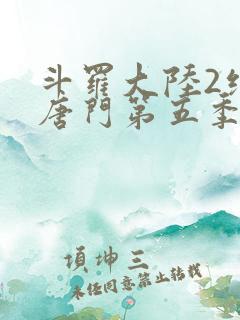 斗羅大陸2絕
唐門第五季
頃坤三
未任同意禁止转载